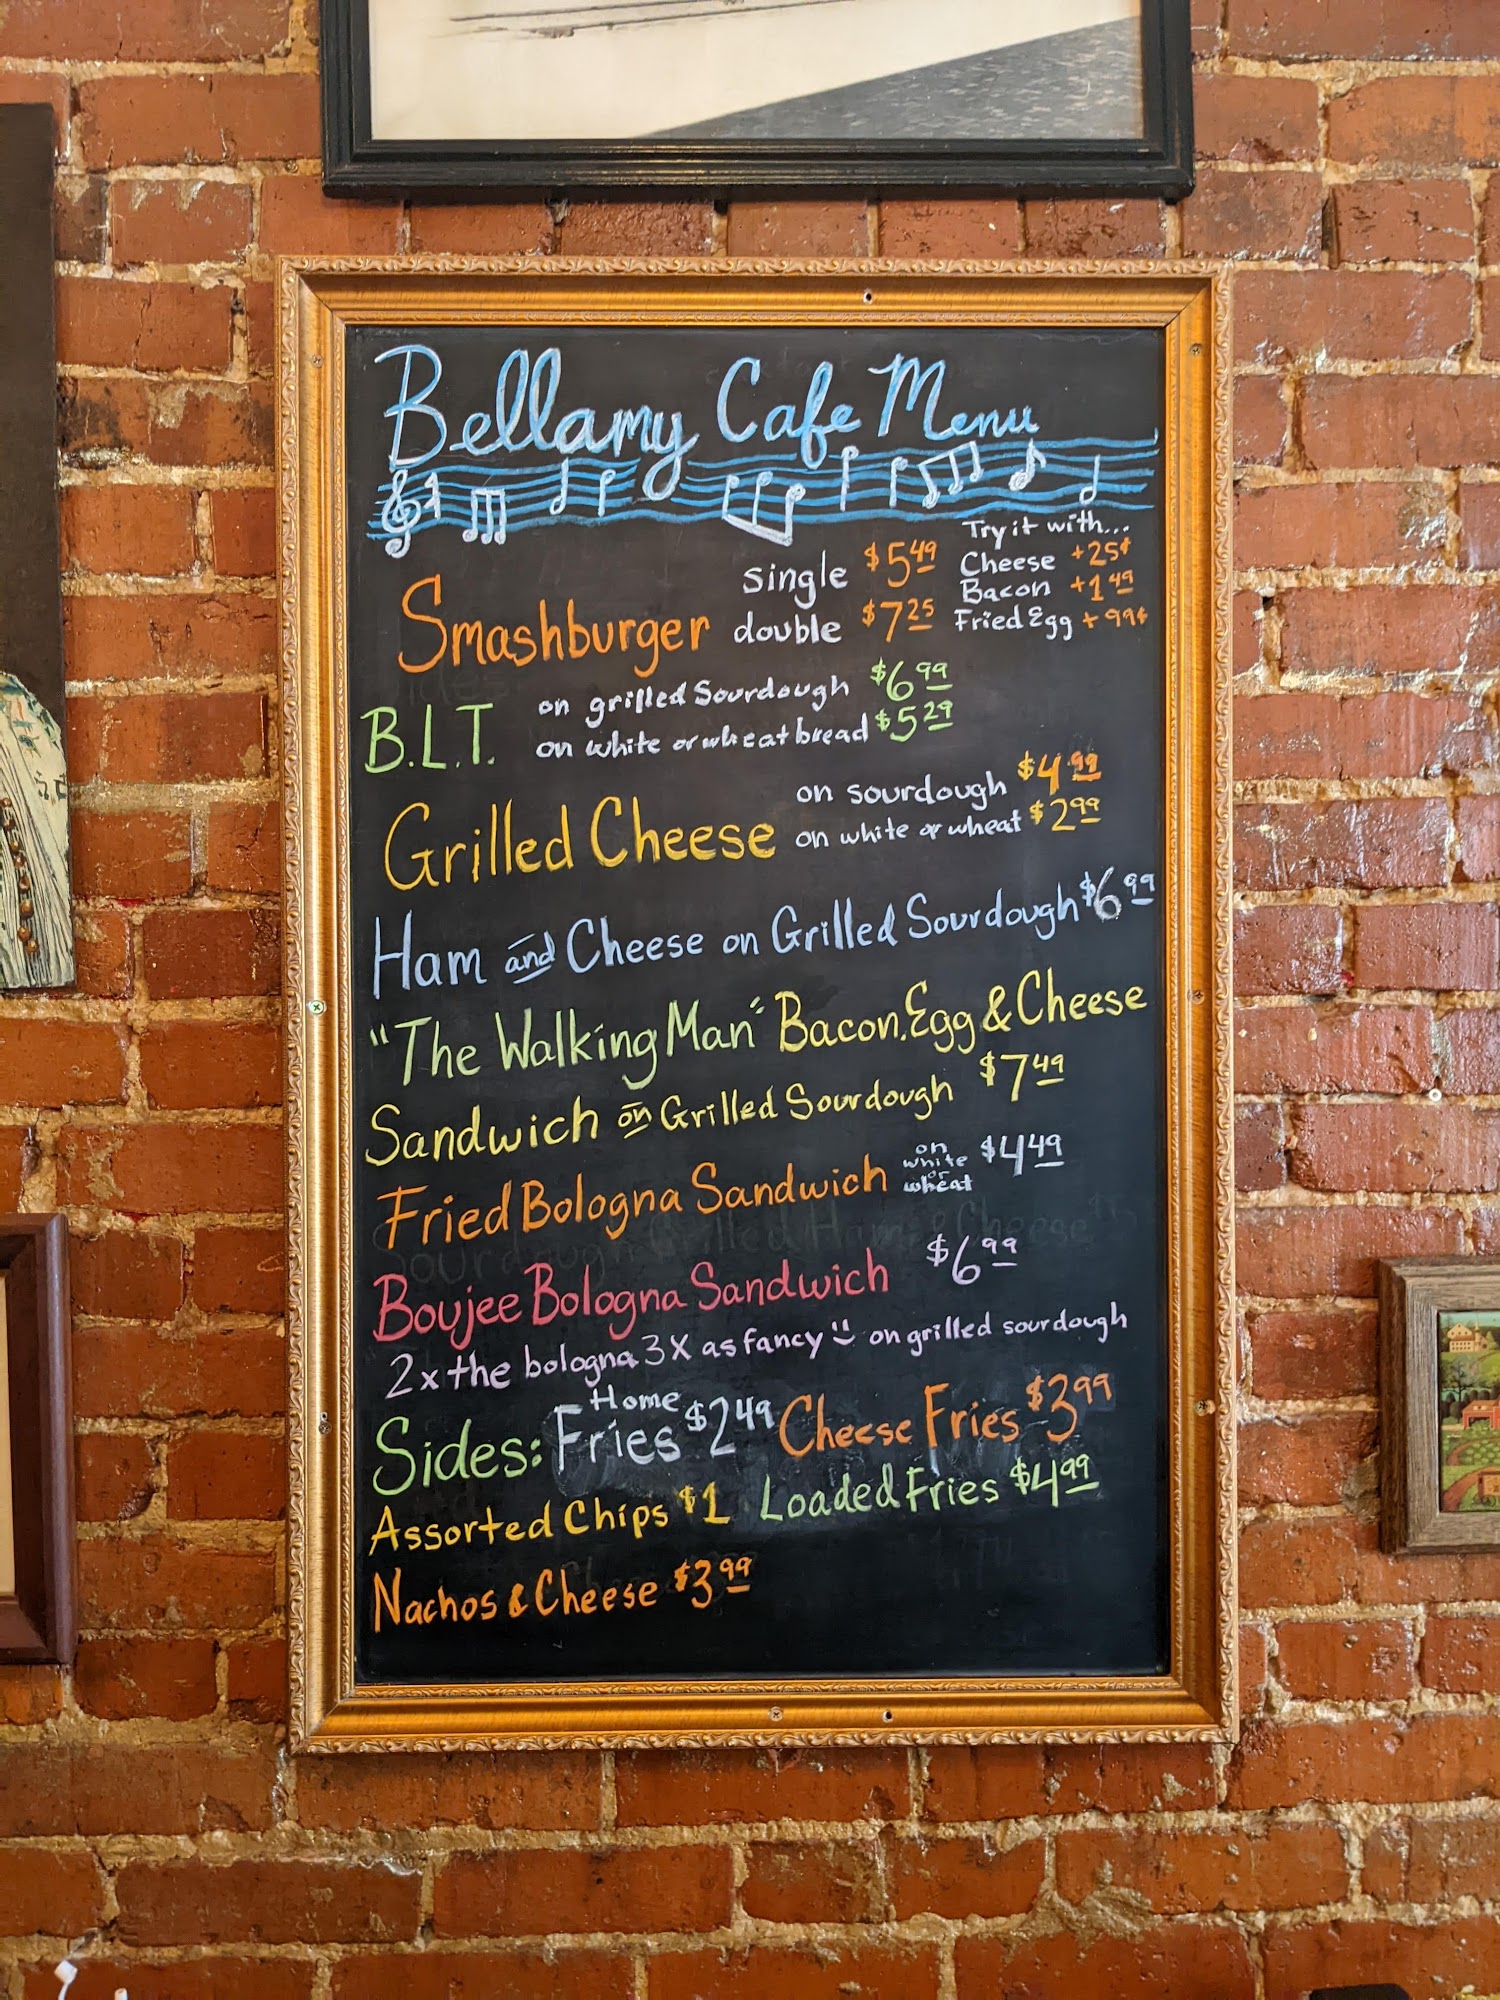 Bellamy Cafe Menu
Try it with...
Smashburger single $5.49 Cheese +25¢
double $7.25 Bacon +1.49
Fried Egg + 99¢
B.L.T. on grilled Sourdough $6.99
on white or wheat bread $5.29
Grilled Cheese on sourdough $4.99
on white or wheat $2.99
Ham and Cheese on Grilled Sourdough $6.99
"The Walking Man" Bacon, Egg & Cheese
Sandwich on Grilled Sourdough $7.49
Fried Bologna Sandwich on white or wheat $4.49
Boujee Bologna Sandwich $6.99
2x the bologna 3X as fancy on grilled sourdough
Sides: Home Fries $2.49 Cheese Fries $3.99
Assorted Chips $1 Loaded Fries $4.99
Nachos & Cheese $3.99